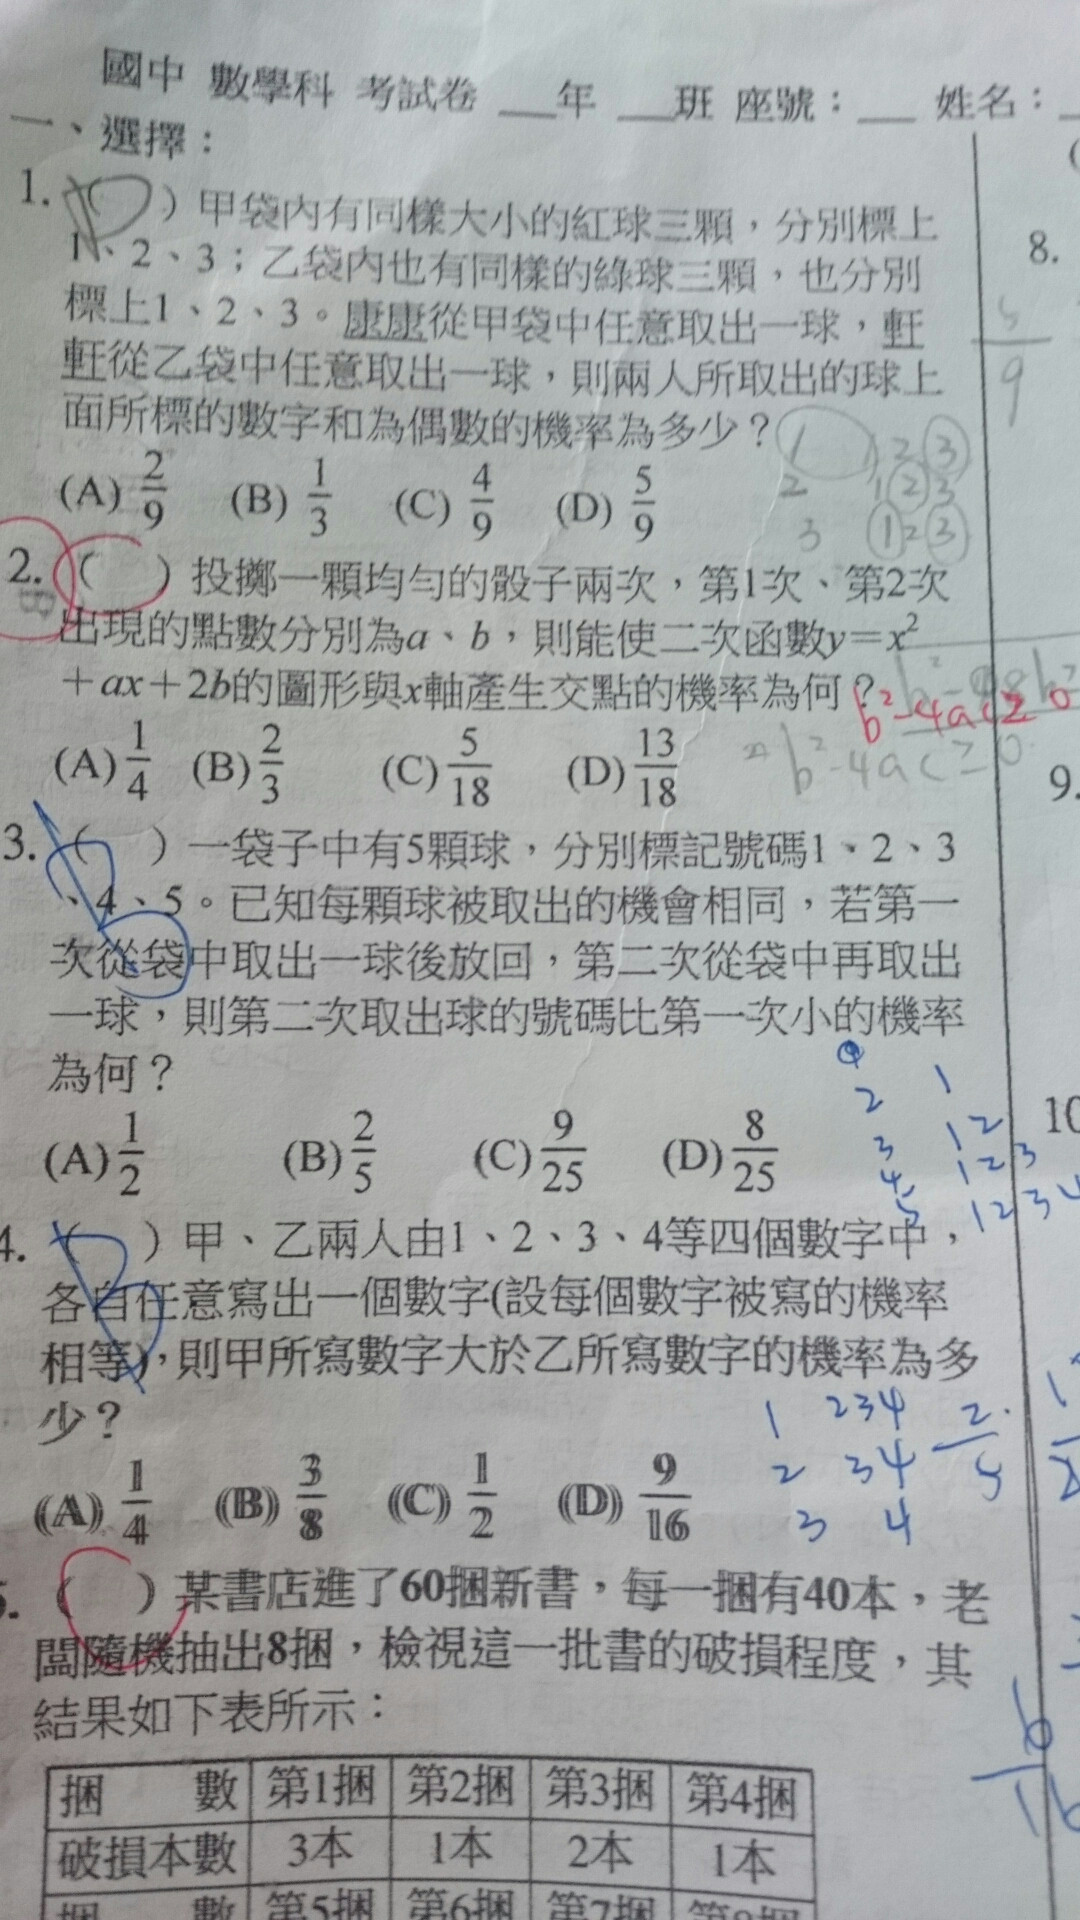 國中 數學科 考試卷 __年 __班 座號：__ 姓名：
一、選擇：
1. ( ) 甲袋內有同樣大小的紅球三顆，分別標上
1、2、3；乙袋內也有同樣的綠球三顆，也分別
標上1、2、3。康康從甲袋中任意取出一球，軒
軒從乙袋中任意取出一球，則兩人所取出的球上
面所標的數字和為偶數的機率為多少？
(A) 2/9 (B) 1/3 (C) 4/9 (D) 5/9
1 1 2 3
2 1 2 3
3 1 2 3
2. ( ) 投擲一顆均勻的骰子兩次，第1次、第2次
出現的點數分別為a、b，則能使二次函數y=x²
+ax+2b的圖形與x軸產生交點的機率為何？
b²-4ac≥0
b²-4ac≥0
(A) 1/4 (B) 2/3 (C) 5/18 (D) 13/18
3. ( ) 一袋子中有5顆球，分別標記號碼1、2、3
、4、5。已知每顆球被取出的機會相同，若第一
次從袋中取出一球後放回，第二次從袋中再取出
一球，則第二次取出球的號碼比第一次小的機率
為何？
2 1
3 1 2
4 1 2 3
5 1 2 3 4
(A) 1/2 (B) 2/5 (C) 9/25 (D) 8/25
4. ( ) 甲、乙兩人由1、2、3、4等四個數字中，
各自任意寫出一個數字(設每個數字被寫的機率
相等)，則甲所寫數字大於乙所寫數字的機率為多
少？
1 234
2 34
3 4
2/5
(A) 1/4 (B) 3/8 (C) 1/2 (D) 9/16
5. ( ) 某書店進了60捆新書，每一捆有40本，老
闆隨機抽出8捆，檢視這一批書的破損程度，其
結果如下表所示：
捆 數 第1捆 第2捆 第3捆 第4捆
破損本數 3本 1本 2本 1本
捆 數 第5捆 第6捆 第7捆 第8捆
8.
5/9
9.
10
6/16